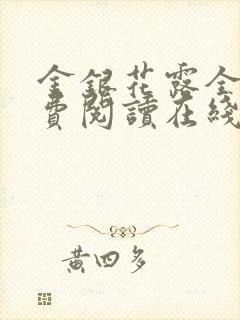 金銀花露全
費閱讀在綫
黃四多